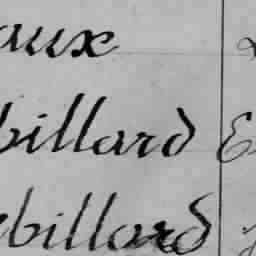 aux
billard E
ebillard